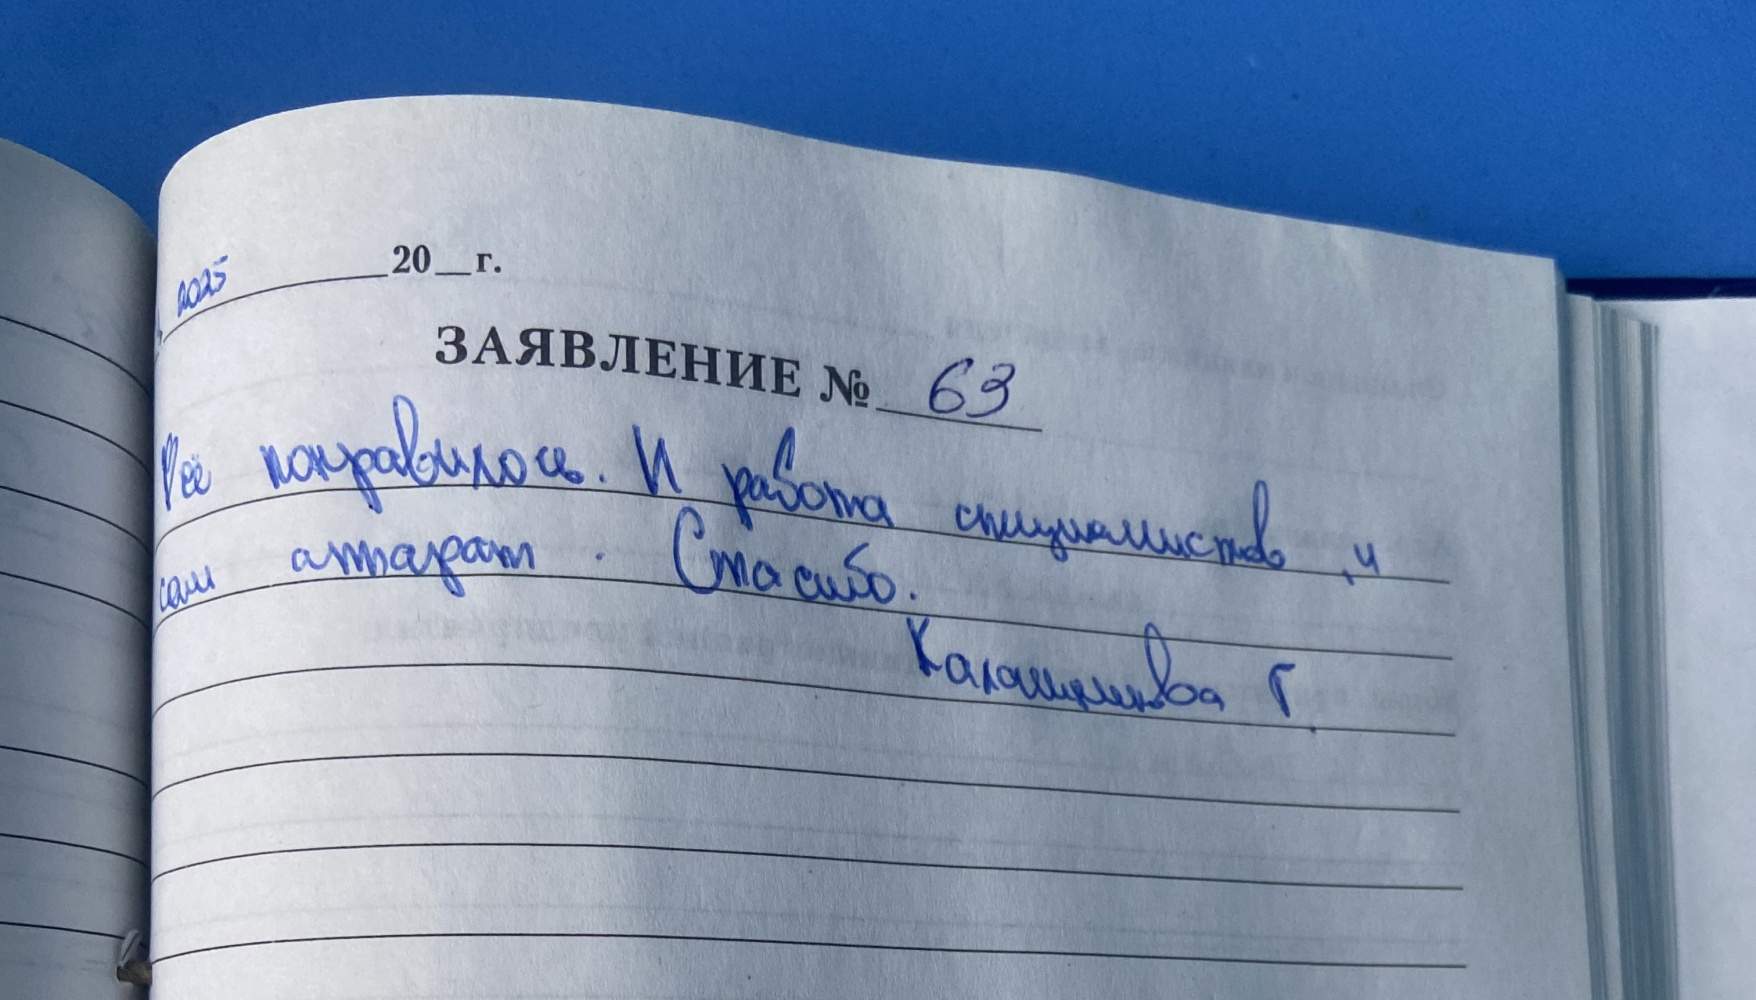 2025 20__г.
ЗАЯВЛЕНИЕ № 63
Всё понравилось. И работа специалистов, и
сам аппарат. Спасибо.
Калашникова Г.